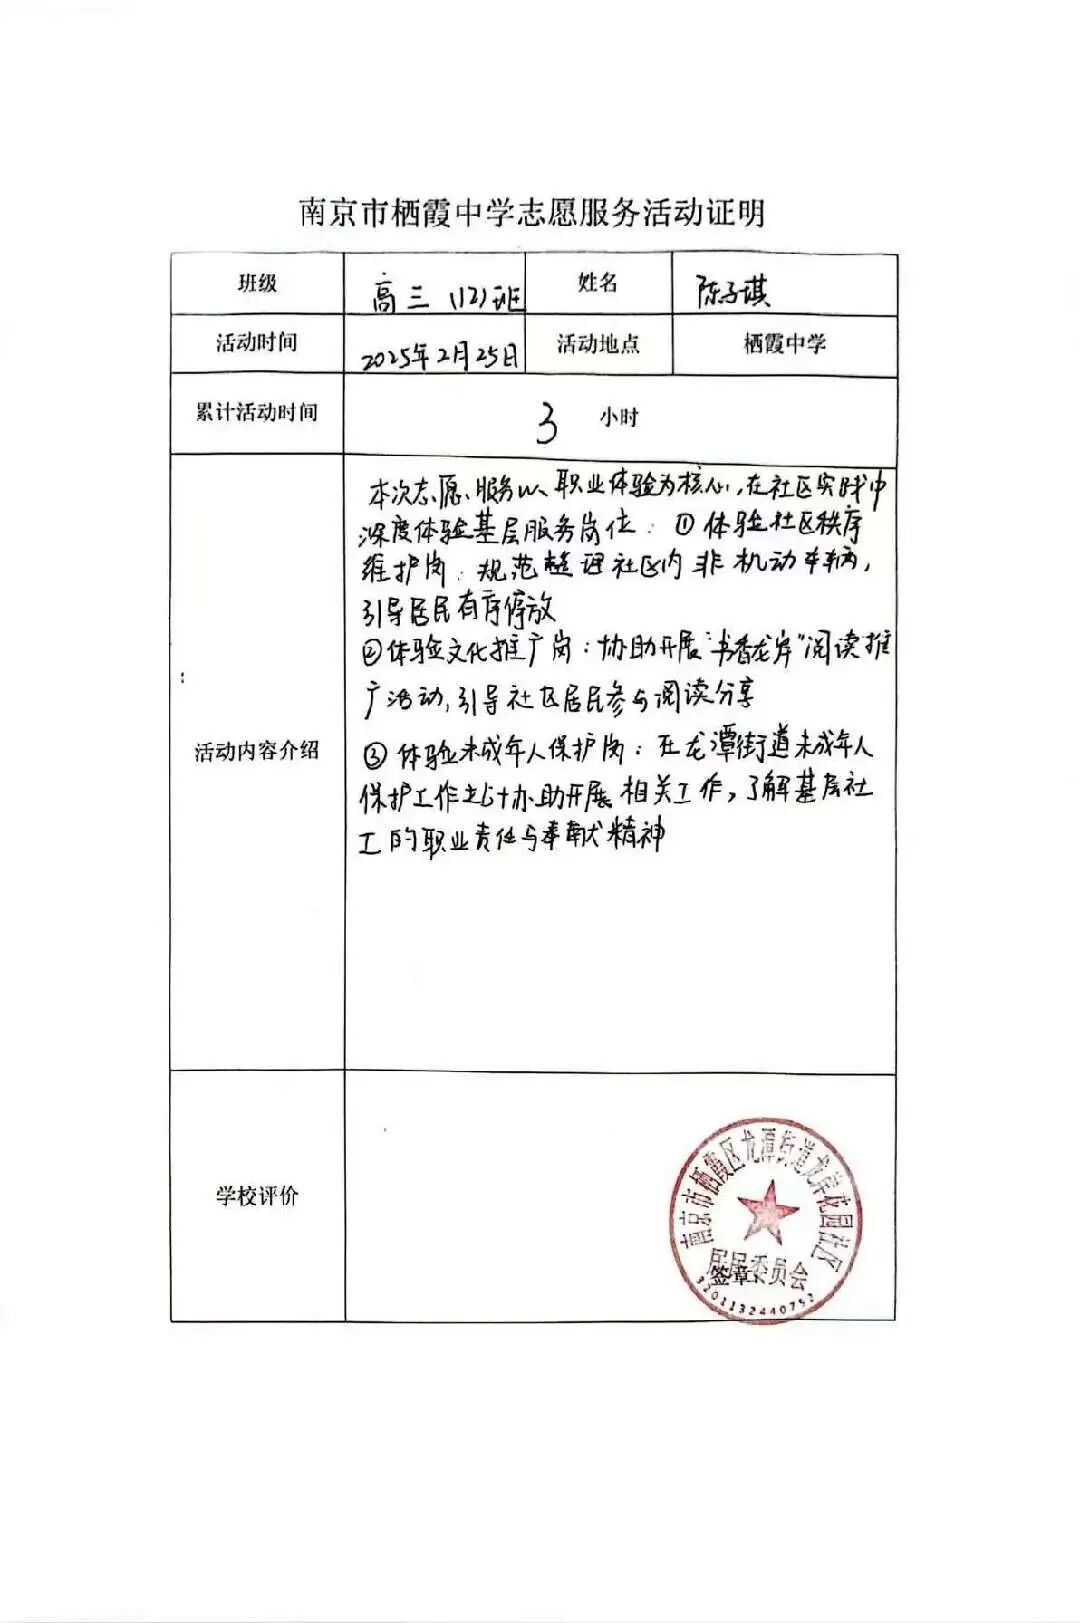 南京市栖霞中学志愿服务活动证明
班级 高三(12)班 姓名 陈子琪
活动时间 2025年2月25日 活动地点 栖霞中学
累计活动时间 3 小时
活动内容介绍
本次志愿服务以职业体验为核心,在社区实践中
深度体验基层服务岗位:①体验社区秩序
维护岗:规范整理社区内非机动车辆,
引导居民有序停放
②体验文化推广岗:协助开展“书香龙岸”阅读推
广活动,引导社区居民参与阅读分享
③体验未成年人保护岗:在龙潭街道未成年人
保护工作站协助开展相关工作,了解基层社
工的职业责任与奉献精神
学校评价
南京市栖霞区龙潭街道龙岸花园社区
居民委员会
签章:
3201132440752